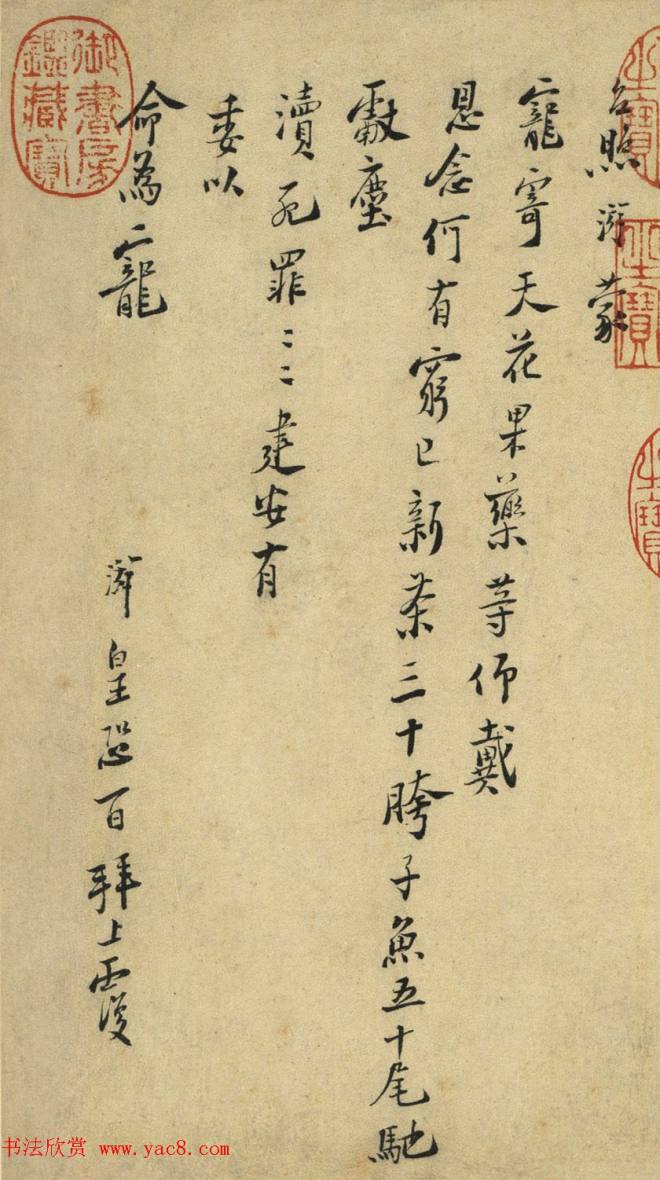 台照游蒙
寵寄天花果藥等仰戴
恩念何有窮已新茶三十胯子魚五十尾馳
獻塵
瀆死罪死罪建安有
委以
命為寵
游皇恐百拜上覆
御書房鑑藏寶
之寶
之寶
之寶
书法欣赏 www.yac8.com